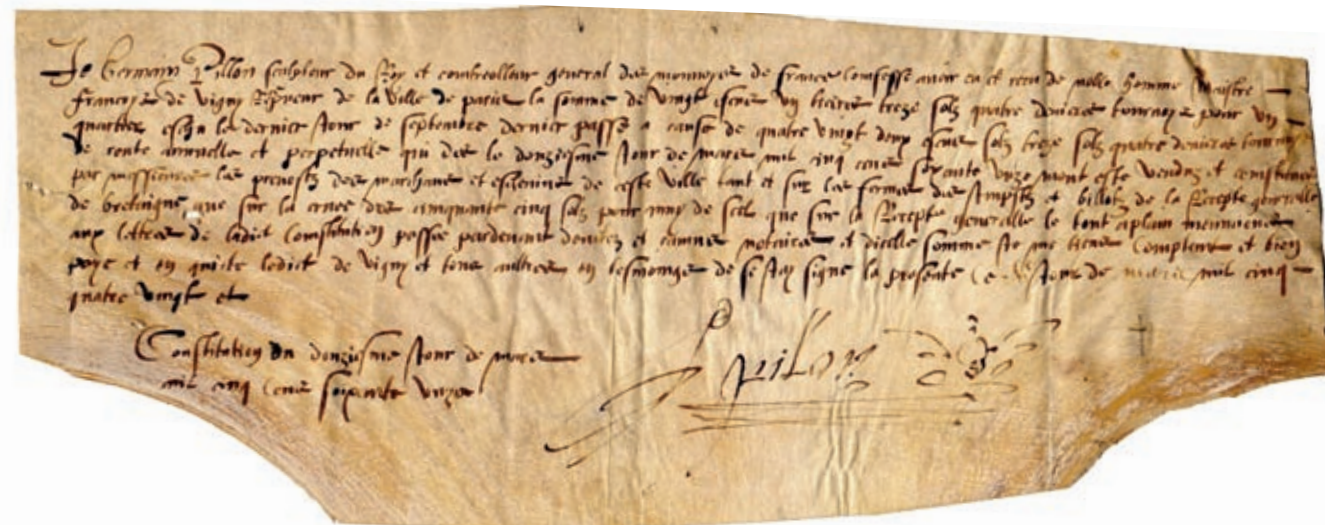 Je Germain Pillon sculpteur du Roy et contreolleur general des monnoyes de france confesse avoir eu et receu de noble homme Maistre
françoys de vigny Receveur de la ville de paris la somme de vingt escus ung tiers treze solz quatre deniers tournoys pour ung
quartier escheu le dernier Jour de septembre dernier passé a cause de quatre vingt deux escus solz treze solz quatre deniers tournoys
de rente annuelle et perpetuelle qui des le douziesme Jour de mars mil cinq cens soixante unze mont esté venduz et constituez
par messieurs les prevostz des marchans et eschevins de ceste ville tant et sur les fermes des Impostz et billotz de la Recepte generalle
de bretaigne que sur la creue des cinquante cinq solz pour muy de scel que sur la Recepte generalle le tout aplain mentionné
aux lettres de ladict Constitution passée pardevant notaires et dicelle somme Je me tiens Comptent et bien
payé et en quicte ledict de vigny et tous aultres en tesmoing de ce Jay signé la presente Jour de mars mil cinq
quatre vingt et
Constitution du douziesme Jour de mars
mil cinq Cens soixante unze
Pilon